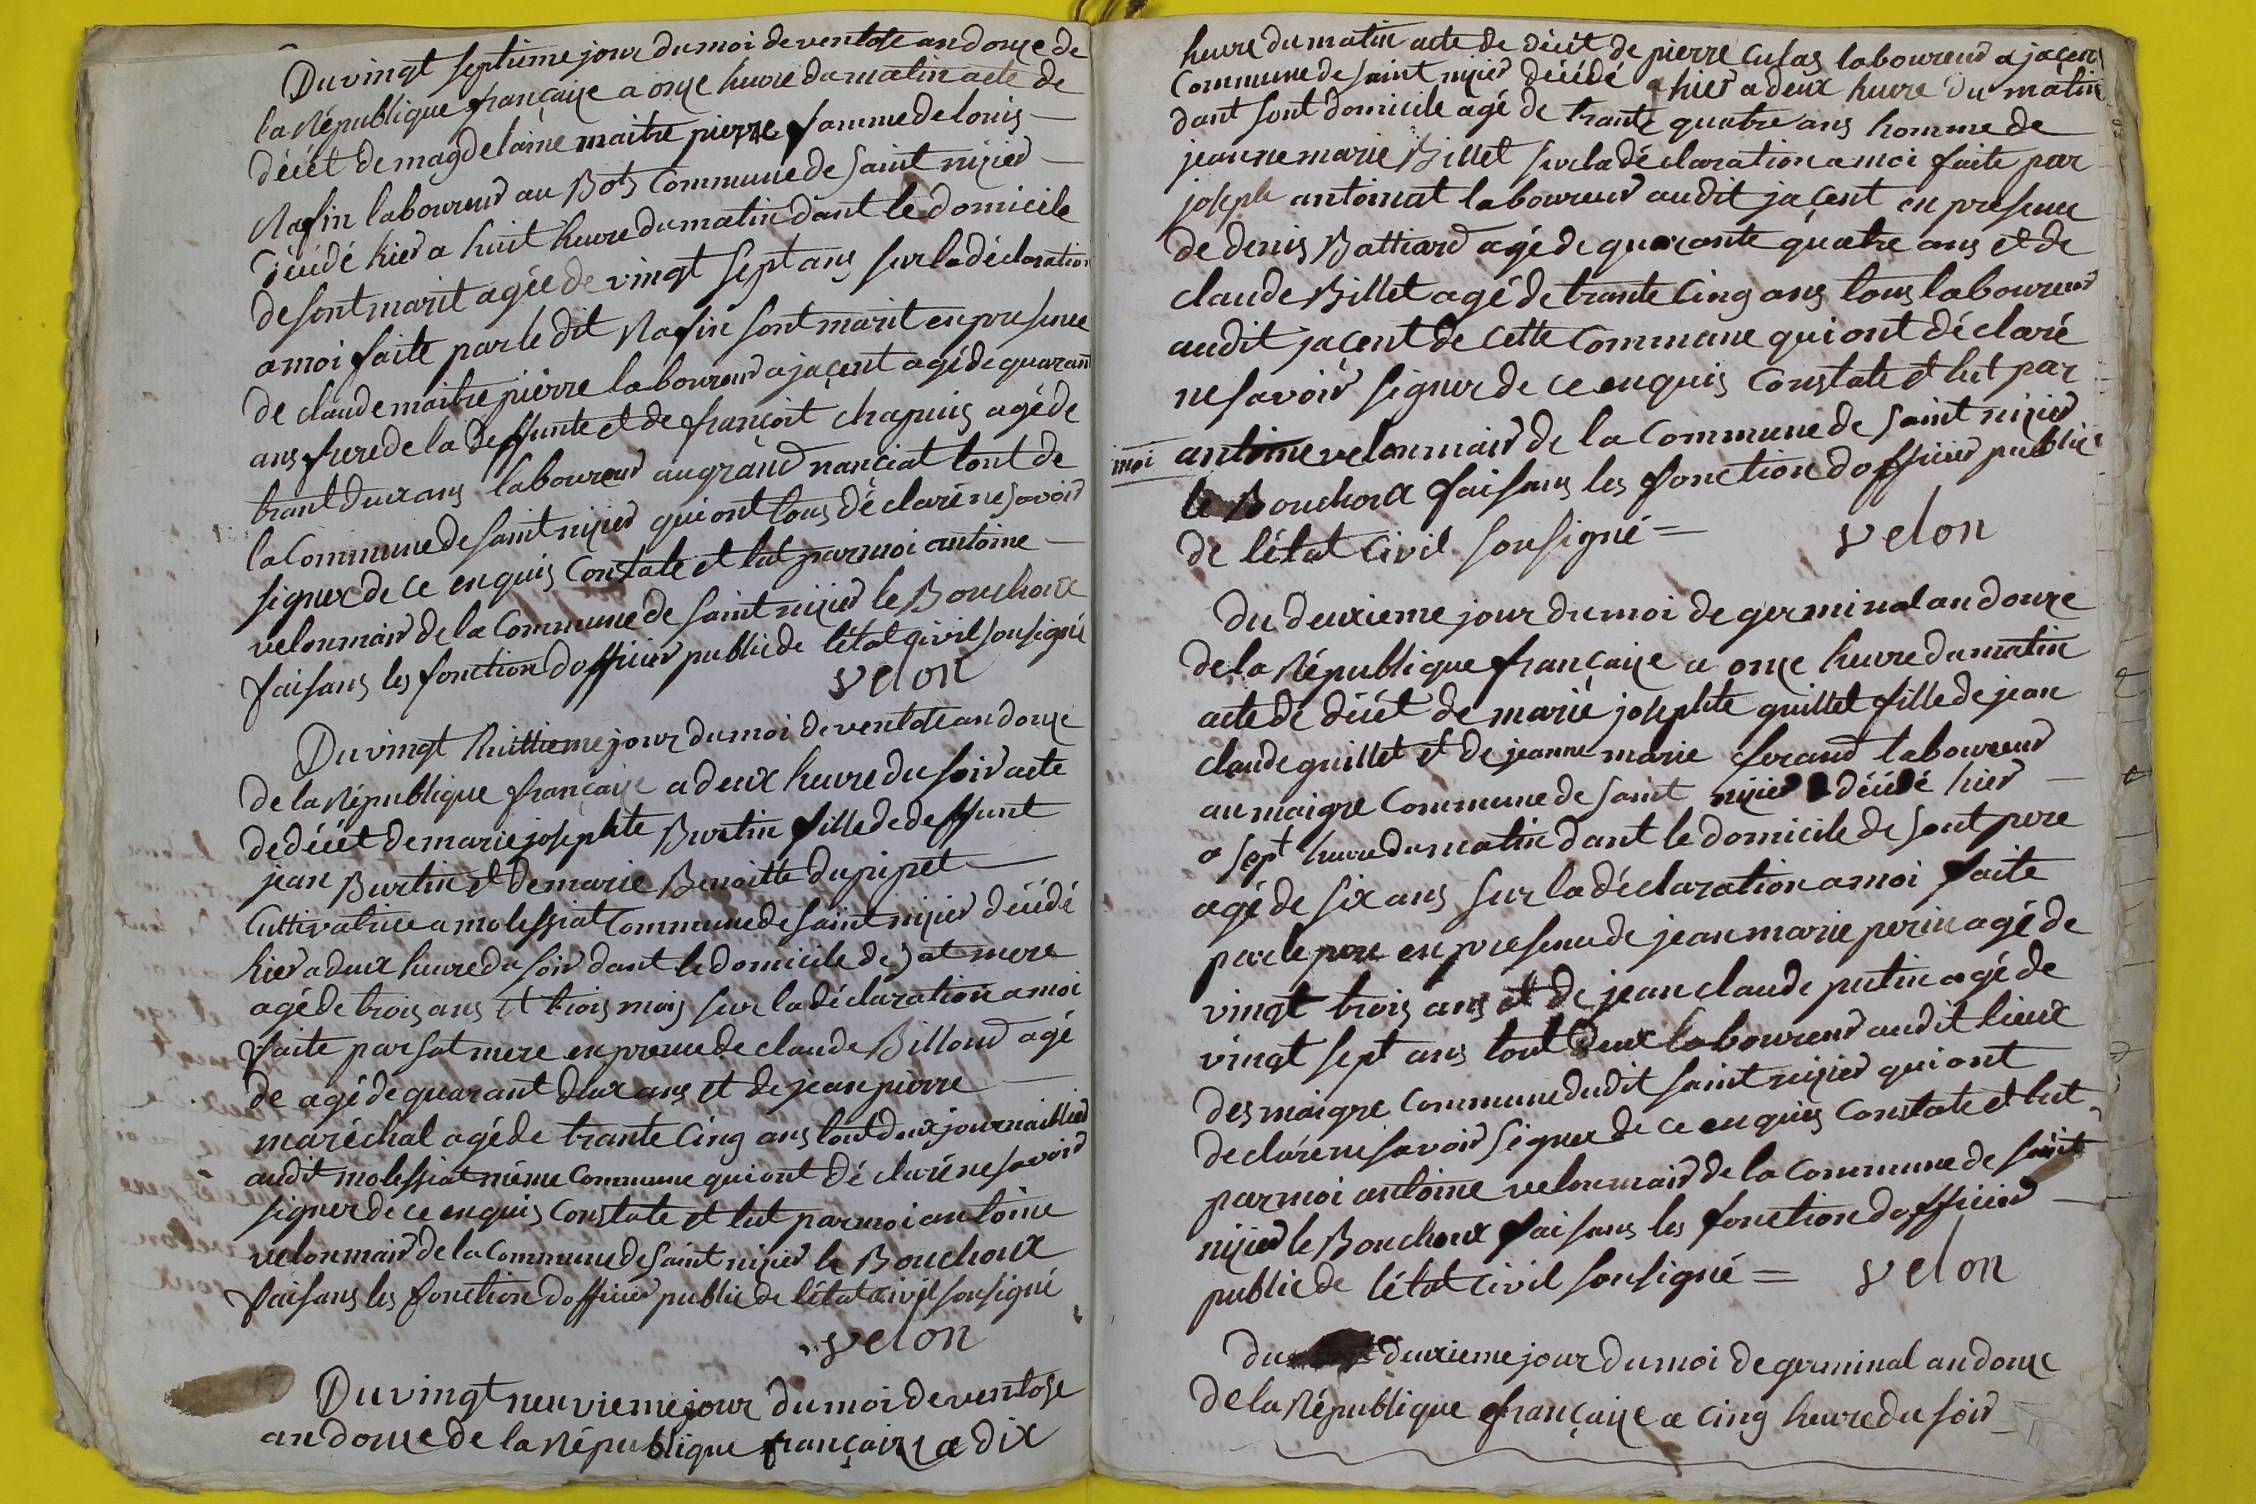 Du vingt septieme jour du moi de ventose an douze de
la République françaize a onze heure du matin acte de
décét de magdelaine maitre pierre famme de louis —
Nafin laboureur au Bots Commune de Saint nizier —
décédé hier a huit heure du matin dant le domicile
de sont marit agée de vingt sept ans sur la déclaration
a moi faite par le dit Nafin sont marit en presence
de claude maitre pierre laboureur a jaçent agé de quarant
ans frere de la deffunte et de françoit chapuis agé de
trant deux ans laboureur au grand nanciat tout de
la Commune de saint nizier qui ont tous déclaré ne savoir
signer de ce enquis Constate et lut par moi antoine —
velon mair de la Commune de Saint nizier le Bouchoux
faisans les fonction dofficier public de létat civil sousigné
velon
Du vingt huittieme jour du moi de ventose an douze
de la République françaize a deux heure du soir acte
de décét de marie josephte Burtin fille de deffunt
jean Burtin et de marie Benoitte dupipet —
Cultivatrice a molessiat Commune de saint nizier décédé
hier a deux heure du soir dant le domicile de sat mere
agé de trois ans et trois mois sur la déclaration a moi
faite par sat mere en preuce de claude Billoud agé
de agé de quarant deux ans et de jean pierre —
maréchal agé de trante Cinq ans tout deux journaillier
audit molessiat même Commune qui ont déclaré ne savoir
signer de ce enquis Constate et lut par moi antoine
velon mair de la Commune de Saint nizier le Bouchoux
faisans les fonction dofficier public de létat civil sousigné
velon
Du vingt neuvieme jour du moi de ventose
an douze de la République françaize a dix
heure du matin acte de décét de pierre Culas laboureur a jaçent
Commune de saint nizier décédé hier a deux heure du matin
dant sont domicile agé de trante quatre ans homme de
jeanne marie Billet sur la déclaration a moi faite par
joseph antoinat laboureur audit jaçent en presence
de denis Battiard agé de quarante quatre ans et de
claude Billet agé de trante Cinq ans tous laboureur
audit jaçent de cette Commune qui ont déclaré
ne savoir signer de ce enquis Constate et lut par
moi antoine velon mair de la Commune de Saint nizier
le Bouchoux faisans les fonction dofficier public
de létat Civil sousigné = velon
du deuxieme jour du moi de germinal an douze
de la République françaize a onze heure du matin
acte de décét de marie josephte guillet fille de jean
claude guillet et de jeanne marie ferand laboureur
au maigre Commune de Saint nizier décédé hier —
a sept heure du matin dant le domicile de sont pere
agé de six ans sur la déclaration a moi faite
par le pere en presence de jean marie perin agé de
vingt trois ans et de jean claude putin agé de
vingt sept ans tout deux laboureur audit lieux
des maigre Commune dudit saint nizier qui ont
declaré ne savoir signer de ce enquis Constate et lut
par moi antoine velon mair de la Commune de saint
nizier le Bouchoux faisans les fonction dofficier —
public de létat Civil sousigné = velon
du deuxieme jour du moi de germinal an douze
de la République françaize a cinq heure du soir